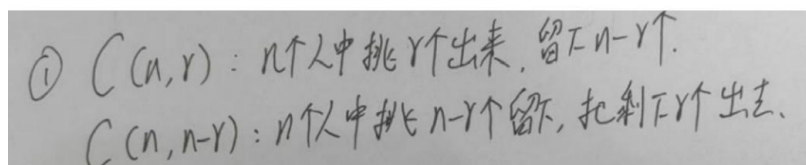 ① C(n,r): n个人中挑r个出来,留下n-r个.
C(n,n-r): n个人中挑n-r个留下,把剩下r个出去、